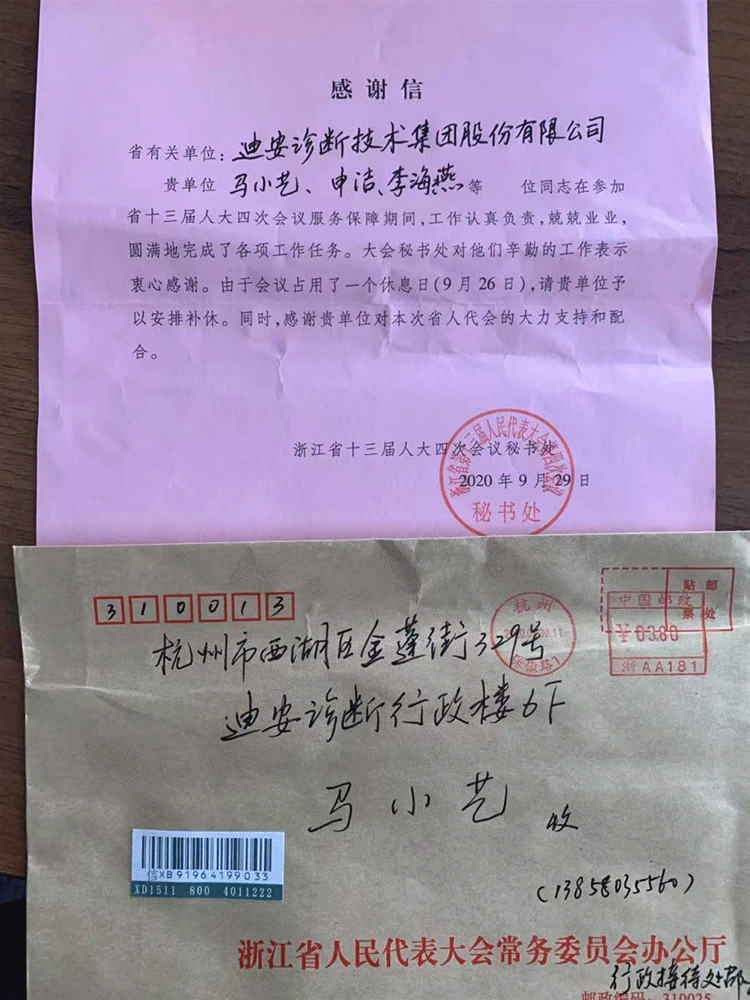 感谢信
省有关单位：迪安诊断技术集团股份有限公司
贵单位 马小艺、申洁、李海燕等 位同志在参加
省十三届人大四次会议服务保障期间，工作认真负责，兢兢业业，
圆满地完成了各项工作任务。大会秘书处对他们辛勤的工作表示
衷心感谢。由于会议占用了一个休息日（9月26日），请贵单位予
以安排补休。同时，感谢贵单位对本次省人代会的大力支持和配
合。
浙江省十三届人大四次会议秘书处
2020年9月29日
浙江省第十三届人民代表大会第四次会议
秘书处
310013
贴邮
票处
中国邮政
0380
浙AA181
杭州
杭州市西湖区金蓬街329号
迪安诊断行政楼6F
马小艺 收
信XB91964199033
XD1511 800 4011222
(13858035560)
浙江省人民代表大会常务委员会办公厅
行政接待处
邮政编码：310025